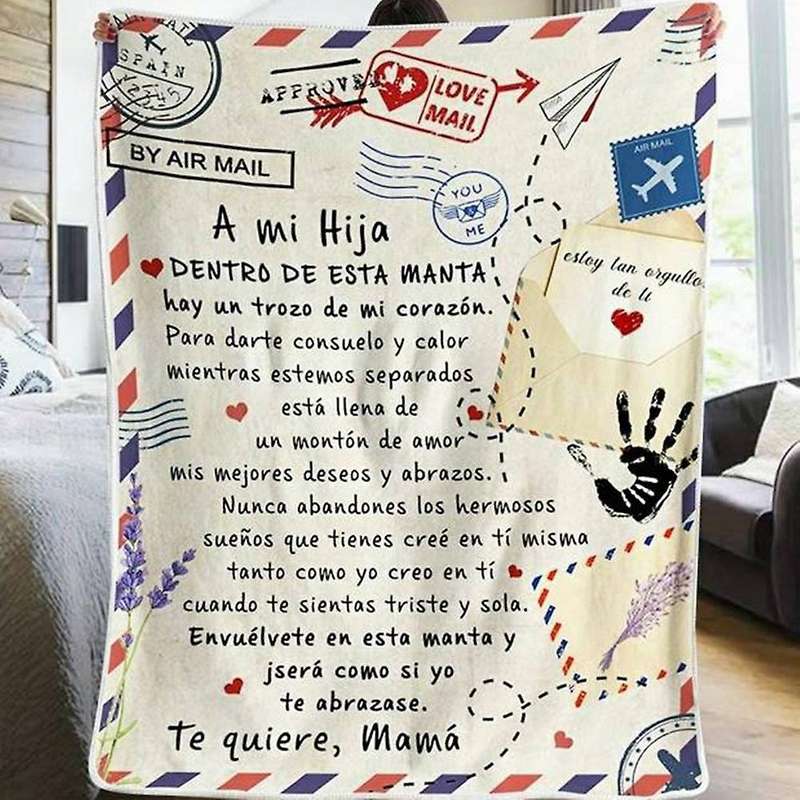 AIR MAIL
SPAIN
APPROVED
LOVE
MAIL
BY AIR MAIL
AIR MAIL
YOU
ME
A mi Hija
DENTRO DE ESTA MANTA
hay un trozo de mi corazón.
Para darte consuelo y calor
mientras estemos separados
está llena de
un montón de amor
mis mejores deseos y abrazos.
Nunca abandones los hermosos
sueños que tienes creé en tí misma
tanto como yo creo en tí
cuando te sientas triste y sola.
Envuélvete en esta manta y
jserá como si yo
te abrazase.
Te quiere, Mamá
estoy tan orgullo
de ti